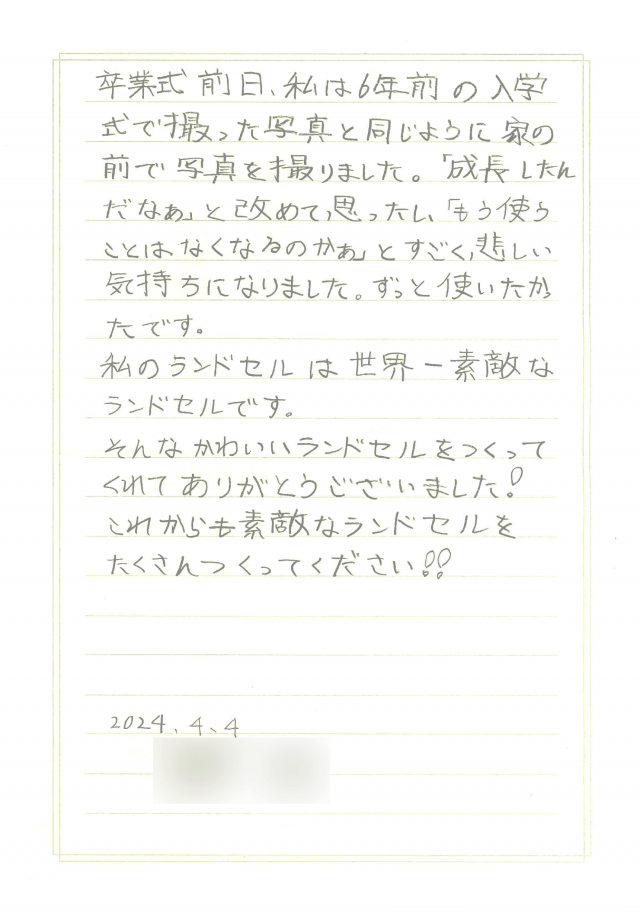 卒業式前日、私は6年前の入学
式で撮った写真と同じように家の
前で写真を撮りました。「成長したん
だなぁ」と改めて思ったし、「もう使う
ことはなくなるのかぁ」とすごく悲しい
気持ちになりました。ずっと使いたかっ
たです。
私のランドセルは世界一素敵な
ランドセルです。
そんなかわいいランドセルをつくって
くれてありがとうございました!
これからも素敵なランドセルを
たくさんつくってください!!
2024、4、4